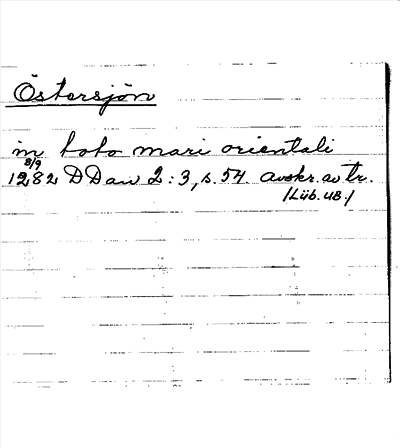 Östersjön
in toto mari orientali
8/9
1282 DDan 2:3, s. 54. avskr. av tr.
/Lüb. UB./